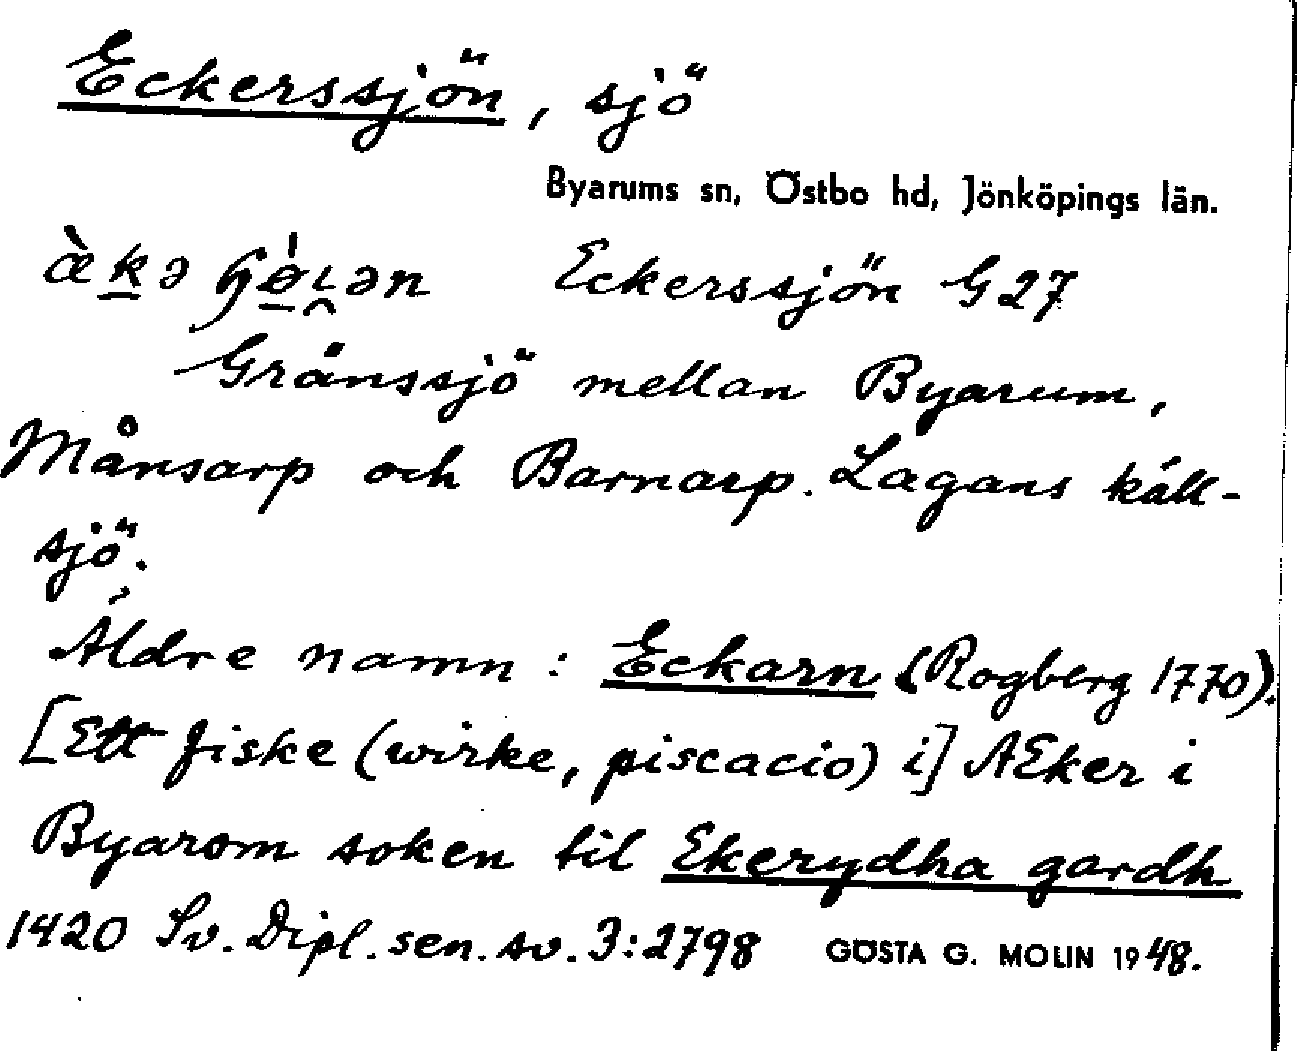 Eckerssjön, sjö
Byarums sn, Östbo hd, Jönköpings län.
Eckerssjön G 27
Gränssjö mellan Byarum,
Månsarp och Barnarp. Lagans käll-
sjö.
Äldre namn: Eckarn (Rogberg 1770).
[Ett fiske (wirke, piscacio) i] AEker i
Byarom soken til Ekerydha gardh
1420 Sv. Dipl. sen. sv. 3:2798 GÖSTA G. MOLIN 1948.